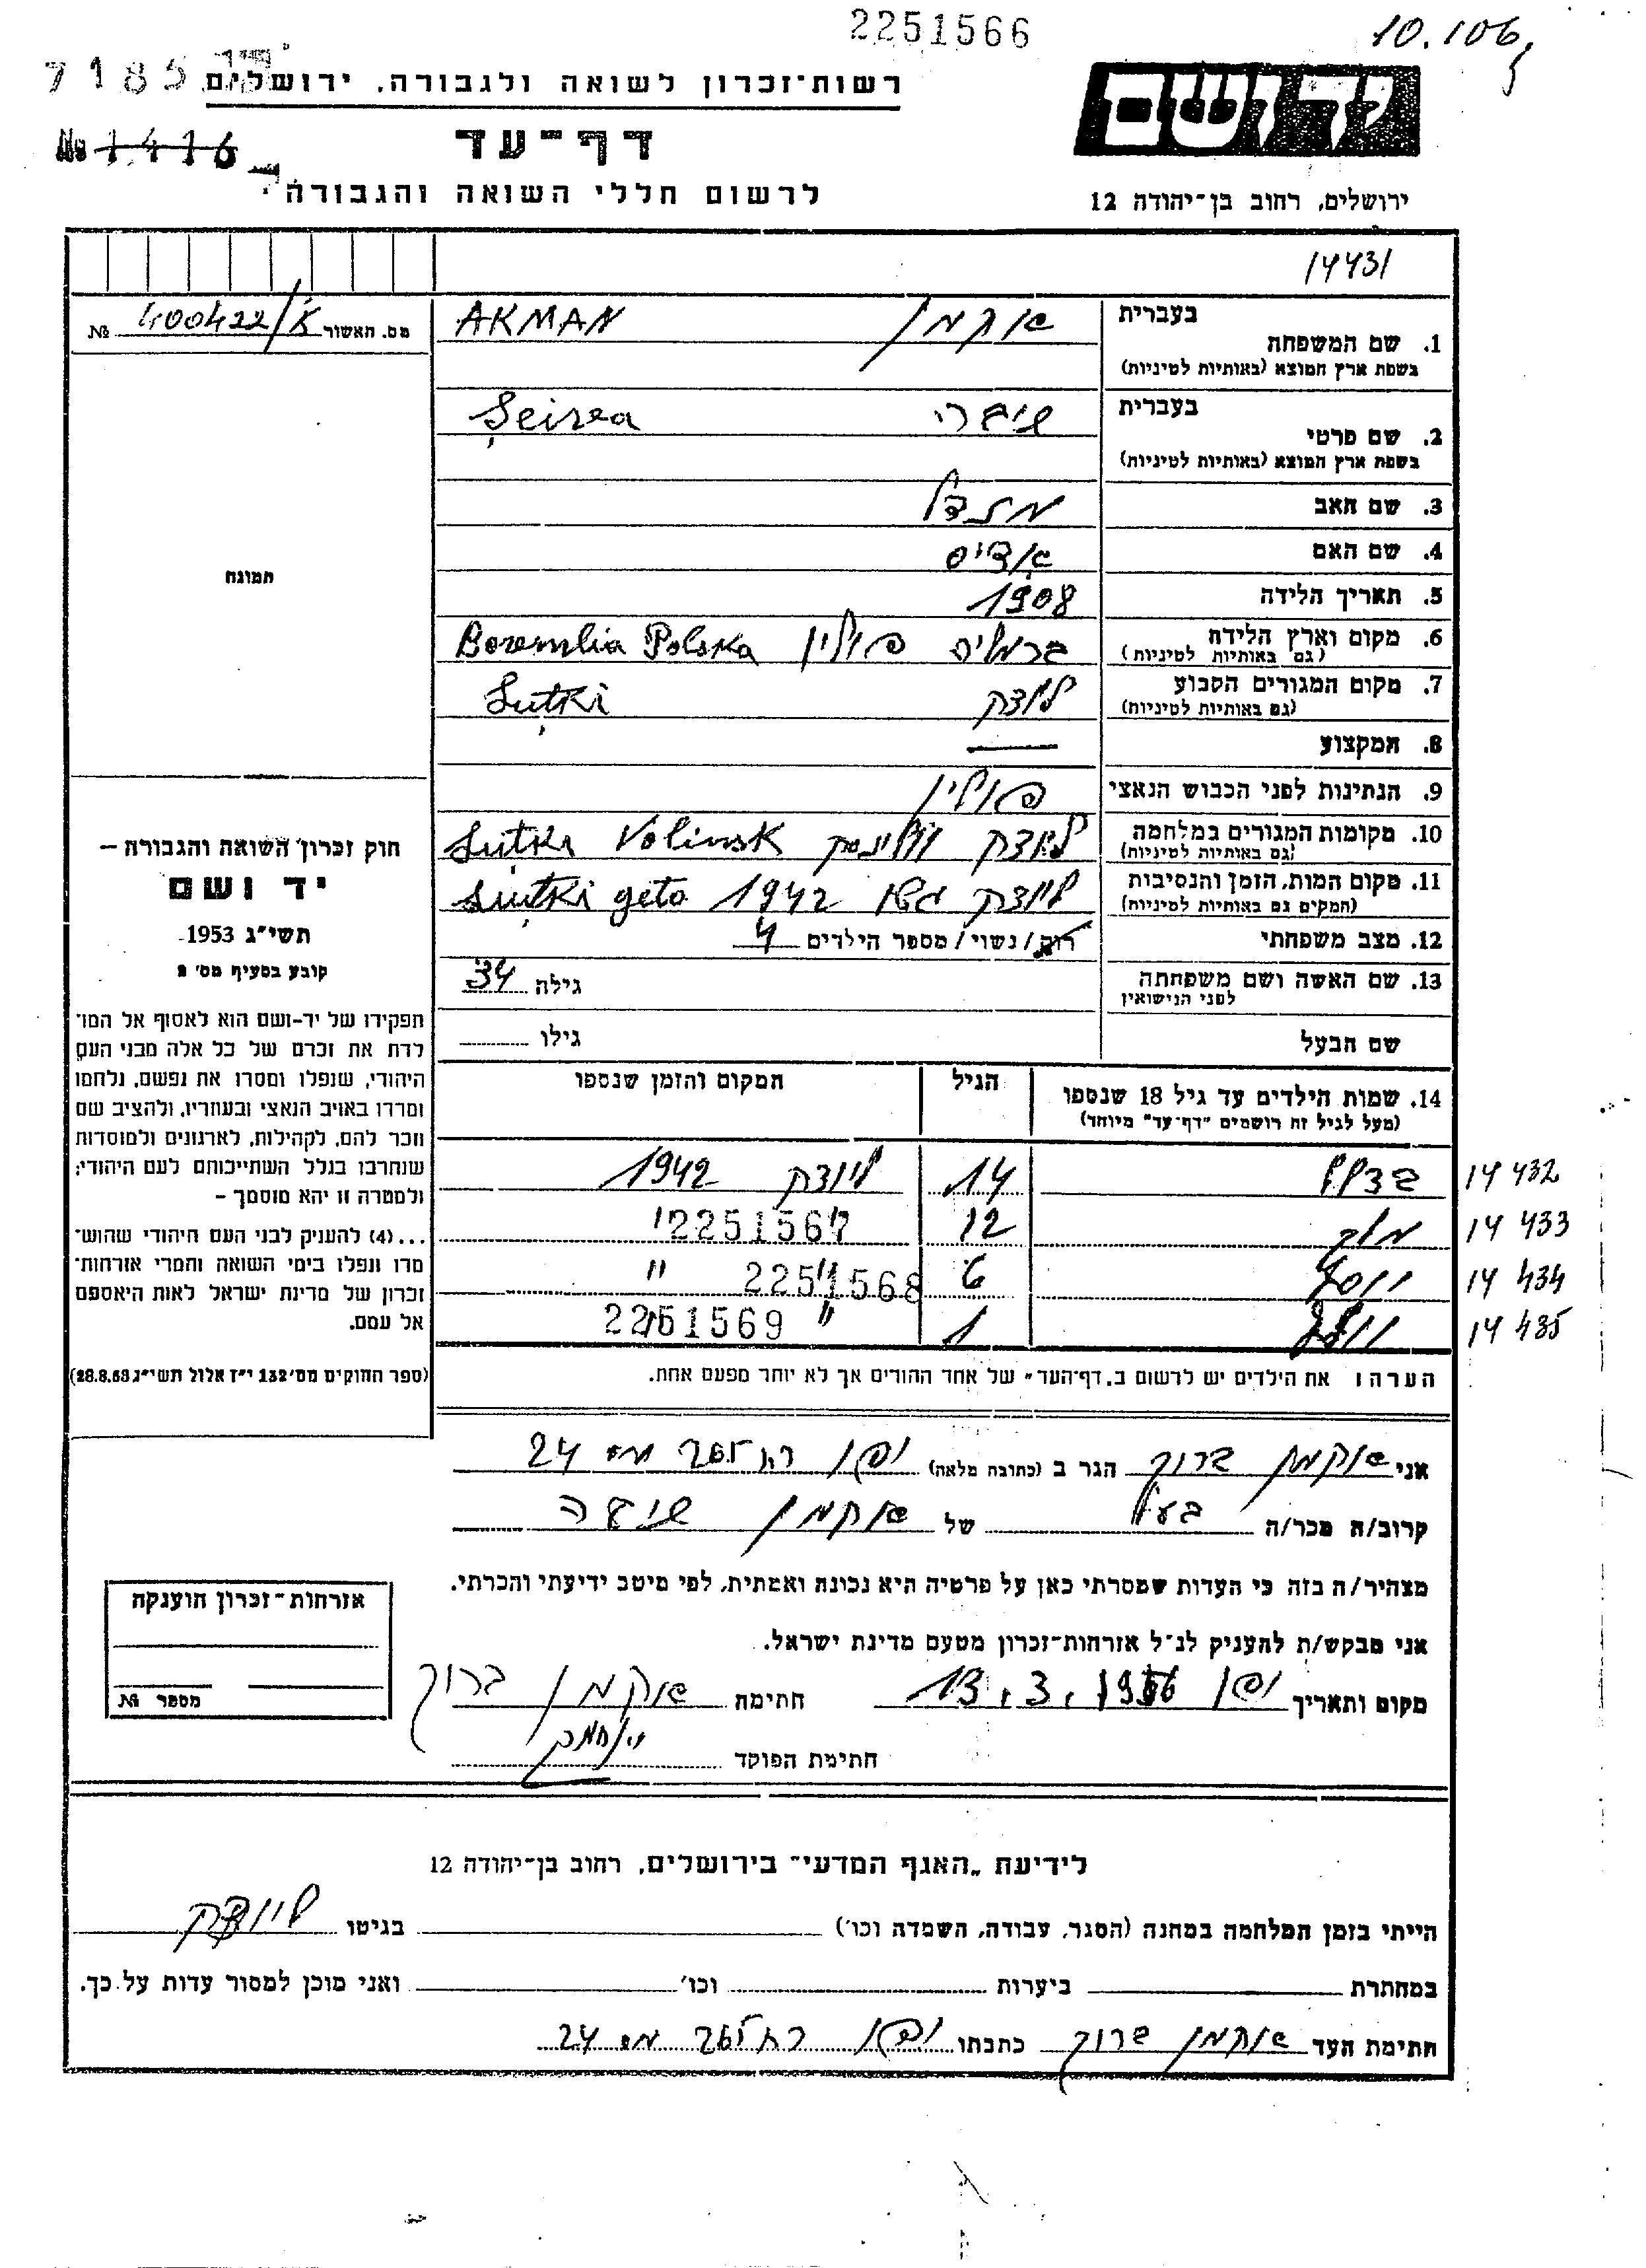 2251566
10.106
7185
רשות־זכרון לשואה ולגבורה, ירושלים
יד ושם
№ 1416
דף־עד
לרשום חללי השואה והגבורה
ירושלים, רחוב בן־יהודה 12
14431
מס. האשור 400422/א №
1. שם המשפחה
בעברית אקמן
בשפת ארץ המוצא (באותיות לטיניות) AKMAN
2. שם פרטי
בעברית
בשפת ארץ המוצא (באותיות לטיניות)
3. שם האב מנדל
4. שם האם
5. תאריך הלידה 1908
6. מקום וארץ הלידה ברמליה פולין Boremlia Polska
(גם באותיות לטיניות)
7. מקום המגורים הקבוע לוצק Luțki
(גם באותיות לטיניות)
8. המקצוע —
9. הנתינות לפני הכבוש הנאצי פולין
10. מקומות המגורים במלחמה לוצק וולינסק Luțki Volinsk
(גם באותיות לטיניות)
11. מקום המות, הזמן והנסיבות לוצק גטו 1942 Luțki geto
(המקים גם באותיות לטיניות)
12. מצב משפחתי רווק / נשוי / מספר הילדים 4
13. שם האשה ושם משפחתה
לפני הנישואין
גילה 34
שם הבעל גילו
14. שמות הילדים עד גיל 18 שנספו
(מעל לגיל זה רושמים "דף־עד" מיוחד)
הגיל
המקום והזמן שנספו
14 לוצק 1942 14 432
12 " 2251567 14 433
6 " 2251568 " 14 434
1 " 2251569 14 435
הערה: את הילדים יש לרשום ב„דף־העד" של אחד ההורים אך לא יותר מפעם אחת.
תמונה
חוק זכרון השואה והגבורה —
יד ושם
תשי״ג 1953
קובע בסעיף מס׳ 2
תפקידו של יד־ושם הוא לאסוף אל המו־
לדת את זכרם של כל אלה מבני העם
היהודי, שנפלו ומסרו את נפשם, נלחמו
ומרדו באויב הנאצי ובעוזריו, ולהציב שם
וזכר להם, לקהילות, לארגונים ולמוסדות
שנחרבו בגלל השתייכותם לעם היהודי;
ולמטרה זו יהא מוסמך —
...(4) להעניק לבני העם היהודי שהוש־
מדו ונפלו בימי השואה והמרי אזרחות־
זכרון של מדינת ישראל לאות היאספם
אל עמם.
(ספר החוקים מס׳ 132 י״ז אלול תשי״ג 28.8.53)
אני אקמן ברוך הגר ב (כתובת מלאה) יפו 24
קרוב/ה מכר/ה בעל של אקמן
מצהיר/ה בזה כי העדות שמסרתי כאן על פרטיה היא נכונה ואמתית, לפי מיטב ידיעתי והכרתי.
אני מבקש/ת להעניק לנ״ל אזרחות־זכרון מטעם מדינת ישראל.
מקום ותאריך יפו 13.3.1956 חתימה אקמן ברוך
חתימת הפוקד
אזרחות־זכרון הוענקה
מספר №
לידיעת „האגף המדעי" בירושלים, רחוב בן־יהודה 12
הייתי בזמן המלחמה במחנה (הסגר, עבודה, השמדה וכו׳) בגיטו לוצק
במחתרת ביערות וכו׳ ואני מוכן למסור עדות על כך.
חתימת העד אקמן ברוך כתבתו יפו 24